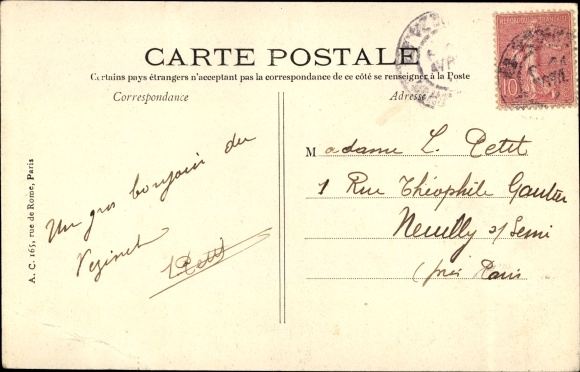 CARTE POSTALE
Certains pays étrangers n'acceptant pas la correspondance de ce côté se renseigner à la Poste
Correspondance
Adresse
A. C. 165, rue de Rome, Paris
Un gros bonjour du
Vezinet
LPetit
Madame L. Petit
1 Rue Théophile Gautier
Neuilly s/ Seine
(près Paris
REPUBLIQUE FRANÇAISE
10
AVRIL